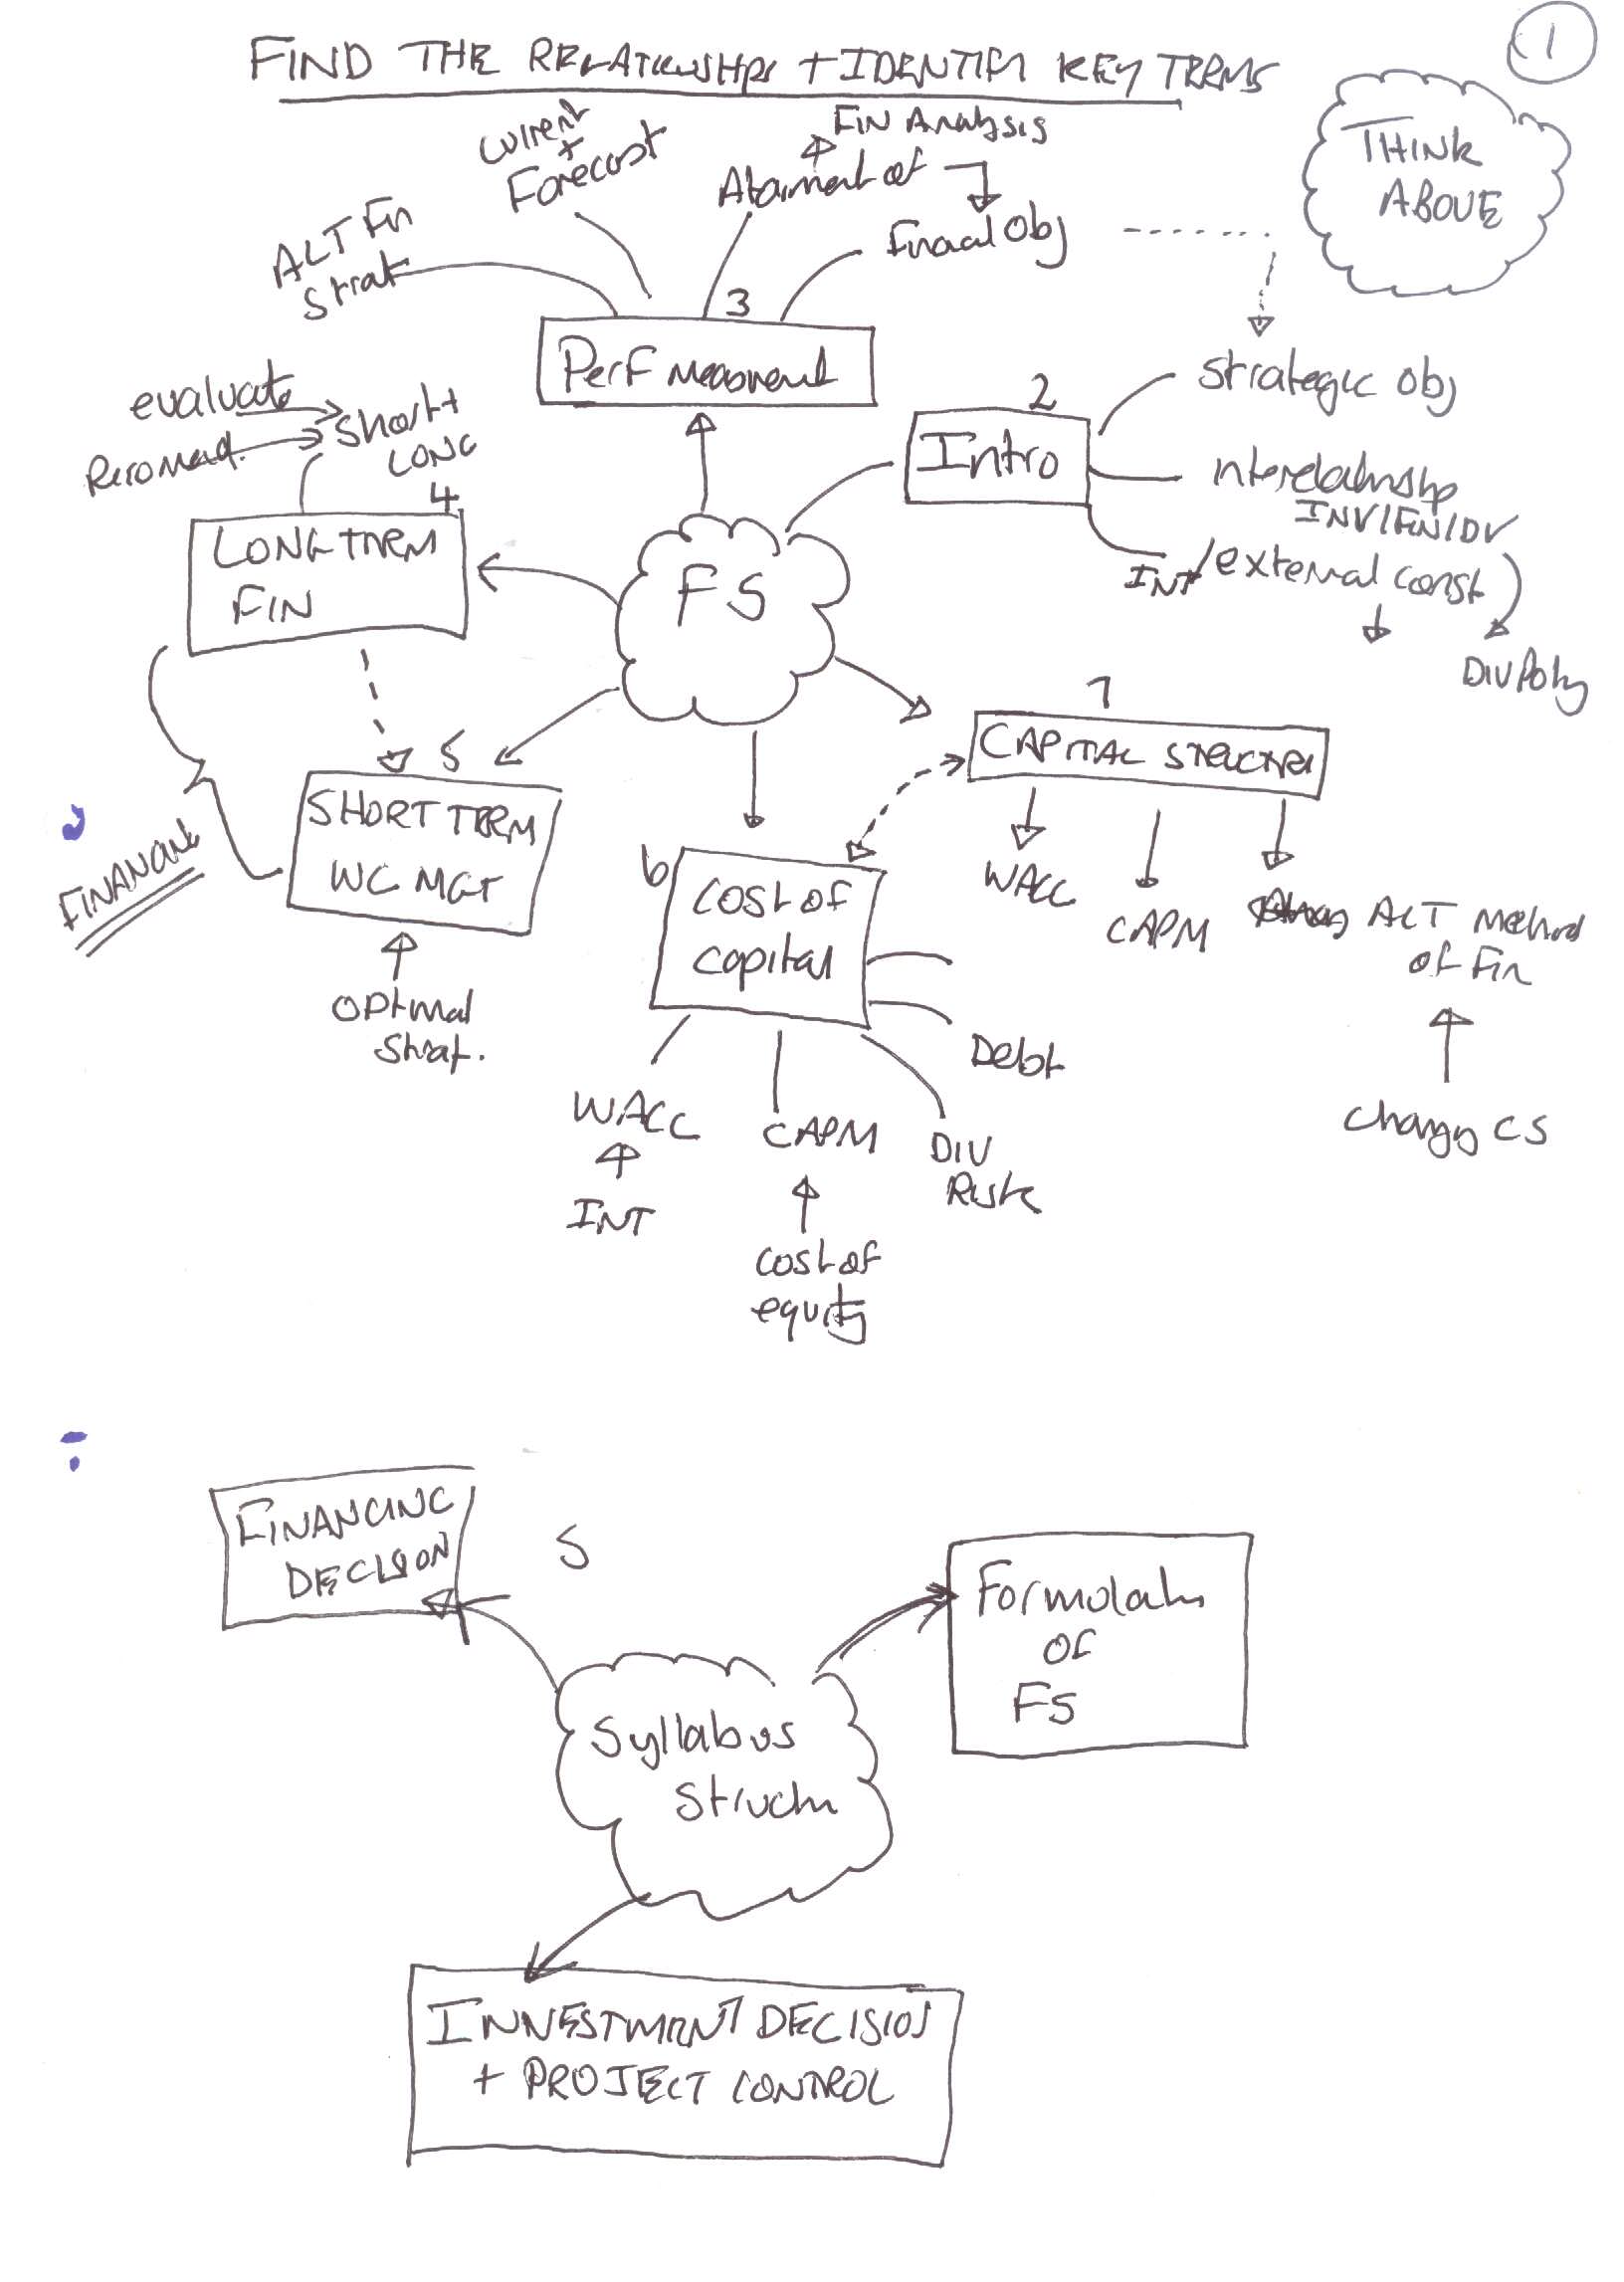 1
FIND THE RELATIONSHIPS + IDENTIFY KEY TERMS
THINK
ABOVE
Current
+
Forecast
Fin Analysis
Attainment of
Financial Obj
ALT Fin
Strat
3
Perf Measurement
evaluate
Recommend.
Short +
LONG
4
LONG TERM
FIN
2
Intro
Strategic Obj
Interrelationship
INV/FIN/DIV
INT/external const
DIV Policy
FS
7
CAPITAL STRUCTURE
WACC
CAPM
ALT Method
of Fin
Changing CS
5
SHORT TERM
WC MGT
FINANCING
Optimal
Strat.
6
Cost of
Capital
Debt
WACC
INT
CAPM
Cost of
equity
DIV
Risk
FINANCING
DECISION
5
Formulation
OF
FS
Syllabus
Structure
INNESTMENT DECISION
+ PROJECT CONTROL